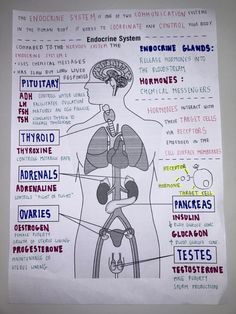 THE ENDOCRINE SYSTEM IS ONE OF TWO COMMUNICATION SYSTEMS
IN THE HUMAN BODY. IT WORKS TO COORDINATE AND CONTROL OUR BODY
Endocrine System
COMPARED TO THE NERVOUS SYSTEM THE
ENDOCRINE SYSTEM:
• USES CHEMICAL MESSAGES
• HAS SLOW BUT LONG LIVED
RESPONSES
ENDOCRINE GLANDS:
RELEASE HORMONES INTO
THE BLOODSTREAM
HORMONES:
CHEMICAL MESSENGERS
PITUITARY
ADH
CONTROLS WATER LEVELS
LH
FACILITATES OVULATION
FSH
MATURES AN EGG FOLLICLE
TSH
STIMULATES THYROID TO
RELEASE THYROXINE
HORMONES INTERACT WITH
THEIR TARGET CELLS
VIA RECEPTORS
EMBEDDED IN THE
CELL SURFACE MEMBRANES
THYROID
THYROXINE
CONTROLS METABOLIC RATE
RECEPTOR
HORMONE
TARGET CELL
ADRENALS
ADRENALINE
CONTROLS "FIGHT OR FLIGHT"
PANCREAS
INSULIN
↓ BLOOD GLUCOSE CONC.
GLUCAGON
↑ BLOOD GLUCOSE CONC.
OVARIES
OESTROGEN
FEMALE PUBERTY
GROWTH OF UTERUS LINING
PROGESTERONE
MAINTAINENCE OF
UTERUS LINING
TESTES
TESTOSTERONE
MALE PUBERTY
SPERM PRODUCTION